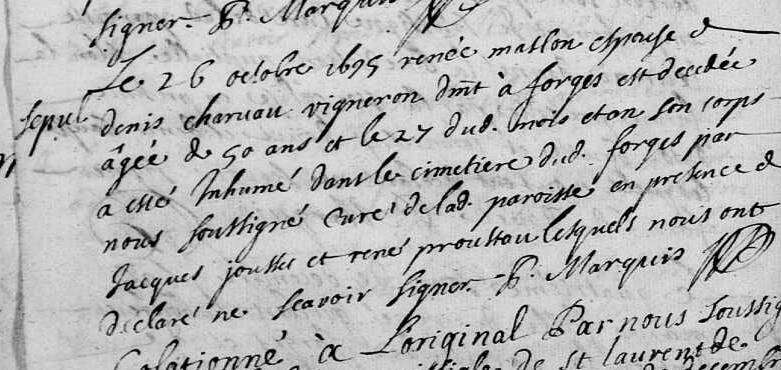 signer. P. Marquis
Le 26 octobre 1695 renée maslon espouse d
sepul denis charuau vigneron dmt à forges est decedée
âgée de 50 ans et le 27 dud. mois et an son corps
a esté Inhumé dans le cimetiere dud. forges par
nous soussigné Curé delad. paroisse en presence de
Jacques jousse et rené proustau lesquels nous ont
declaré ne scavoir signer. P. Marquis
Colationné à L'original Par nous soussig
de St laurent de